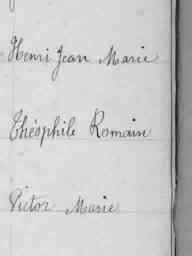 Henri Jean Marie
Théophile Romain
Victor Marie